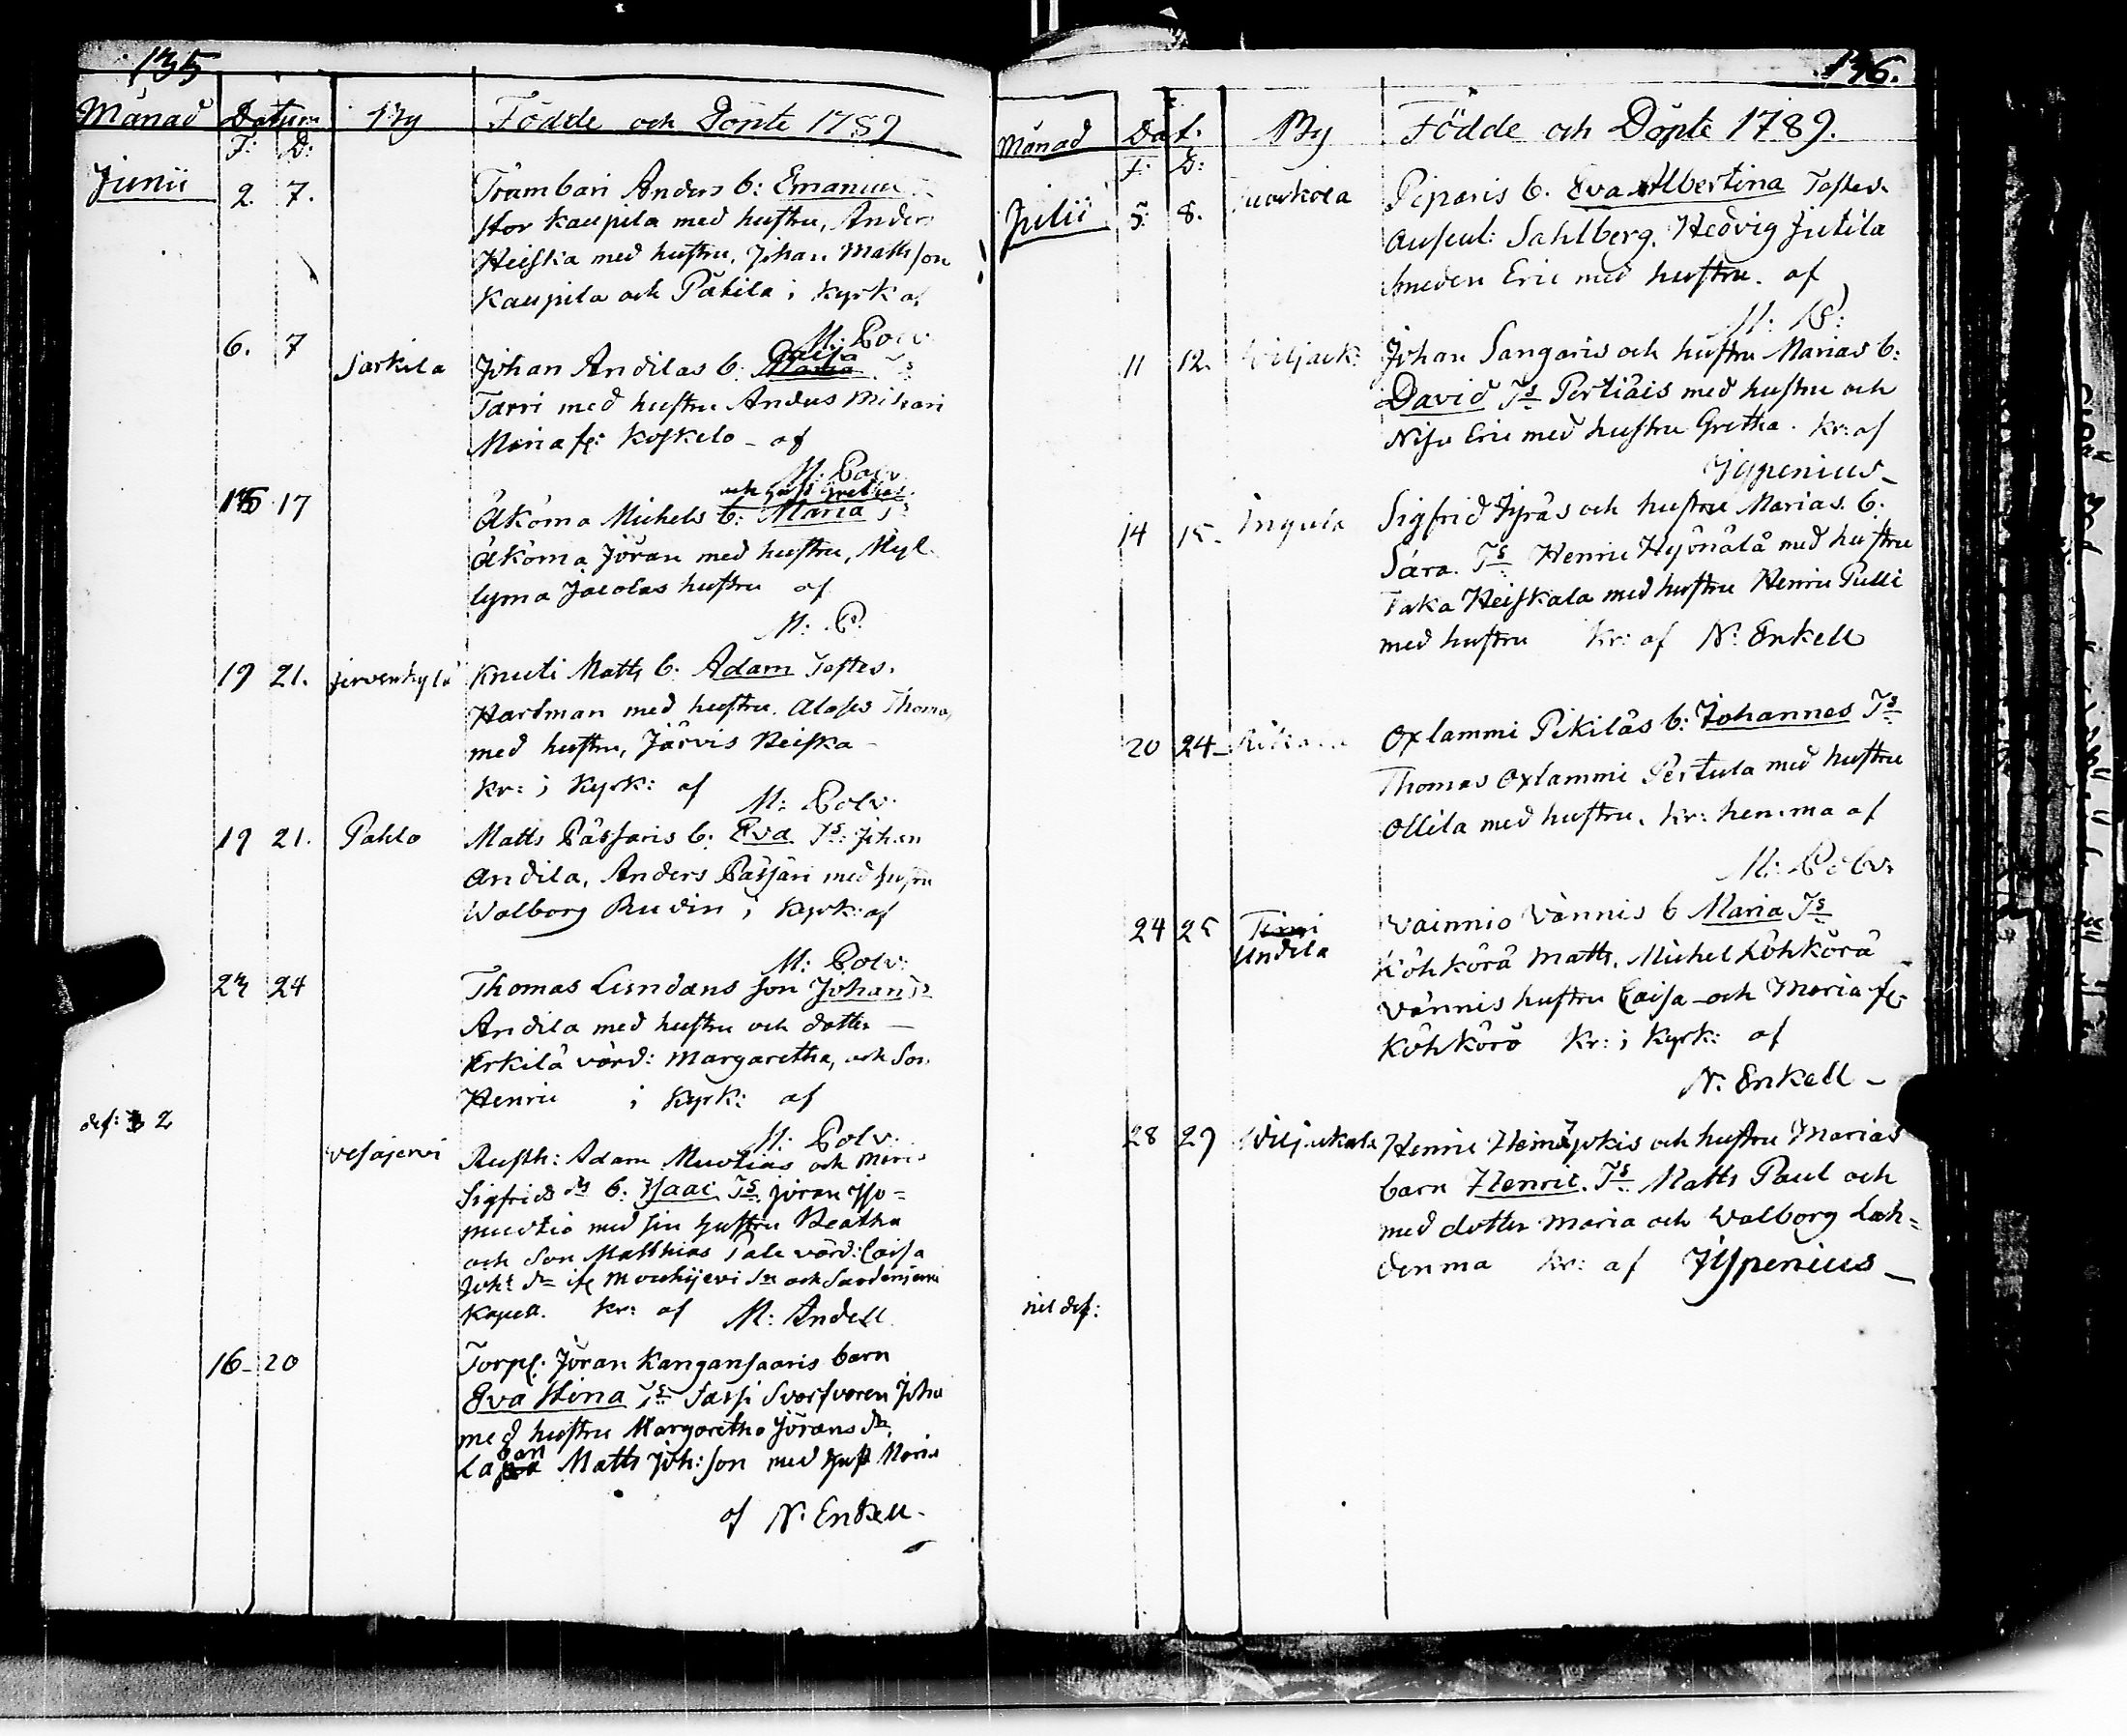 135
Månad Datum By Födde och Döpte 1789
F: D:
Junii 2. 7. Trambari Anders b: Emanuel
Stor Kaupila med hustru, Anders
Heiska med hustru, Johan Mattsson
Kaupila och Pätilä i Kyrk af
M: Polv:
6. 7 Sarkila Johan Andilas b: Caisa Ts
Tarri med hustru Anders Mikari
Maria fl: Koskelo - af
M: Polv
och hust Grethas
17 Äköma Michels b: Maria Ts
Äkömä Jöran med hustru, Myl-
lymä Jacobs hustru af
M: P.
19 21. Jervenkylä Knuti Matts b: Adam Testes.
Hartman med hustru. Thomas
med hustru, Järvis Reiska
kr: i Kyrk: af M: Polv:
19 21. Pahlo Matts Pässäris b: Eva Ts: Johan
Andila, Anders Pässäri med hustru
Walborg Rudin i Kyrk: af
M: Polv:
23 24 Thomas Lundans son Johan Ts
Andila med hustru och dotter
Erkilä värd: Margaretha, och Son
Henric i Kyrk: af
M: Polv:
def: 2
Vesajervi Rusth: Adam och Maria
Sigfrids dr b: Isaac Ts Jöran Iso=
muotio med sin hustru Beatha
och Son Matthias värd: Caisa
Joh: dr
Kapell. kr: af M: Andell
16 - 20 Torp: Jöran Kangansaaris barn
Eva Stina Ts Sassi Svarfvaren Joha
med hustru Margaretha Jörans dr
Matts Joh: son med hust Maria
af N. Enkell.
136.
Månad Dat. By Födde och Döpte 1789.
F: D:
Julii 5. 8. Piparis b. Eva Albertina Testes.
Auscul: Sahlberg. Hedvig Jutila
Smeden Eric med hustru. af
M: P:
11 12. Johan Sangaris och hustru Marias b:
David Ts Pertiäis med hustru och
Eric med hustru Gretha. kr: af
Jypenius_
14 15. Ingula Sigfrid Jyräs och hustru Marias. b.
Sara. Ts Henric Hyönälä med hustru
Taka Heiskala med hustru Henric Pulli
med hustru kr: af N: Enkell
20 24_ Oxlammi Pikiläs b: Johannes Ts
Thomas Oxlammi Pertula med hustru
Ollila med hustru. kr: hemma af
M: Polv:
24 25 Undila Vainnio Vännis b Maria Ts
Köhkörä Matts, Michel Köhkörä
Vännis hustru Caisa och Maria fl:
Köhkörö kr: i Kyrk: af
N. Enkell -
28 29 Wiljakala Henric och hustru Marias
barn Henric. Ts. Matts Paul och
med dotter Maria och Walborg Lah=
denma kr: af Jypenius_
nil def: